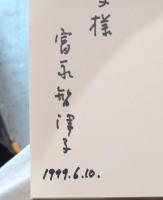 様
富永智津子
1999.6.10.